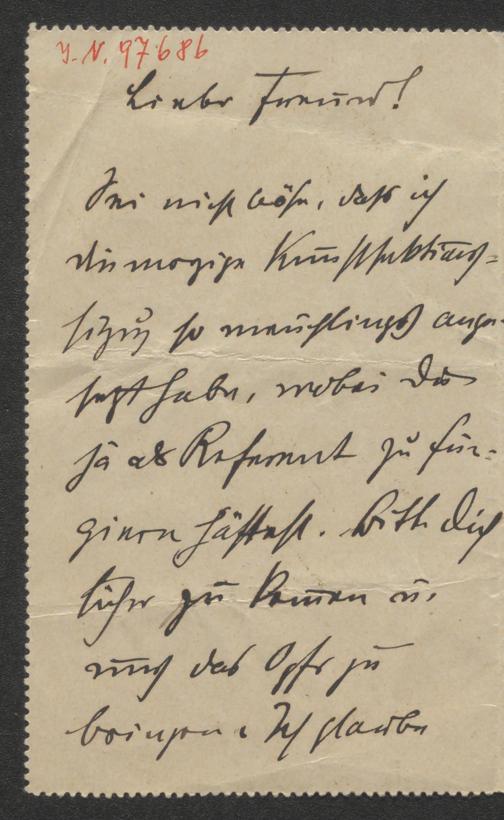 J.N. 97686
Lieber Freund!
Sei nicht böse, dass ich
die morgige Kunstsektions=
sitzung so meuchlings ange-
setzt habe, wobei Du
ja als Referent zu fun-
gieren hättest. Bitte Dich
sicher zu kommen u.
uns das Opfer zu
bringen. Ich glaube